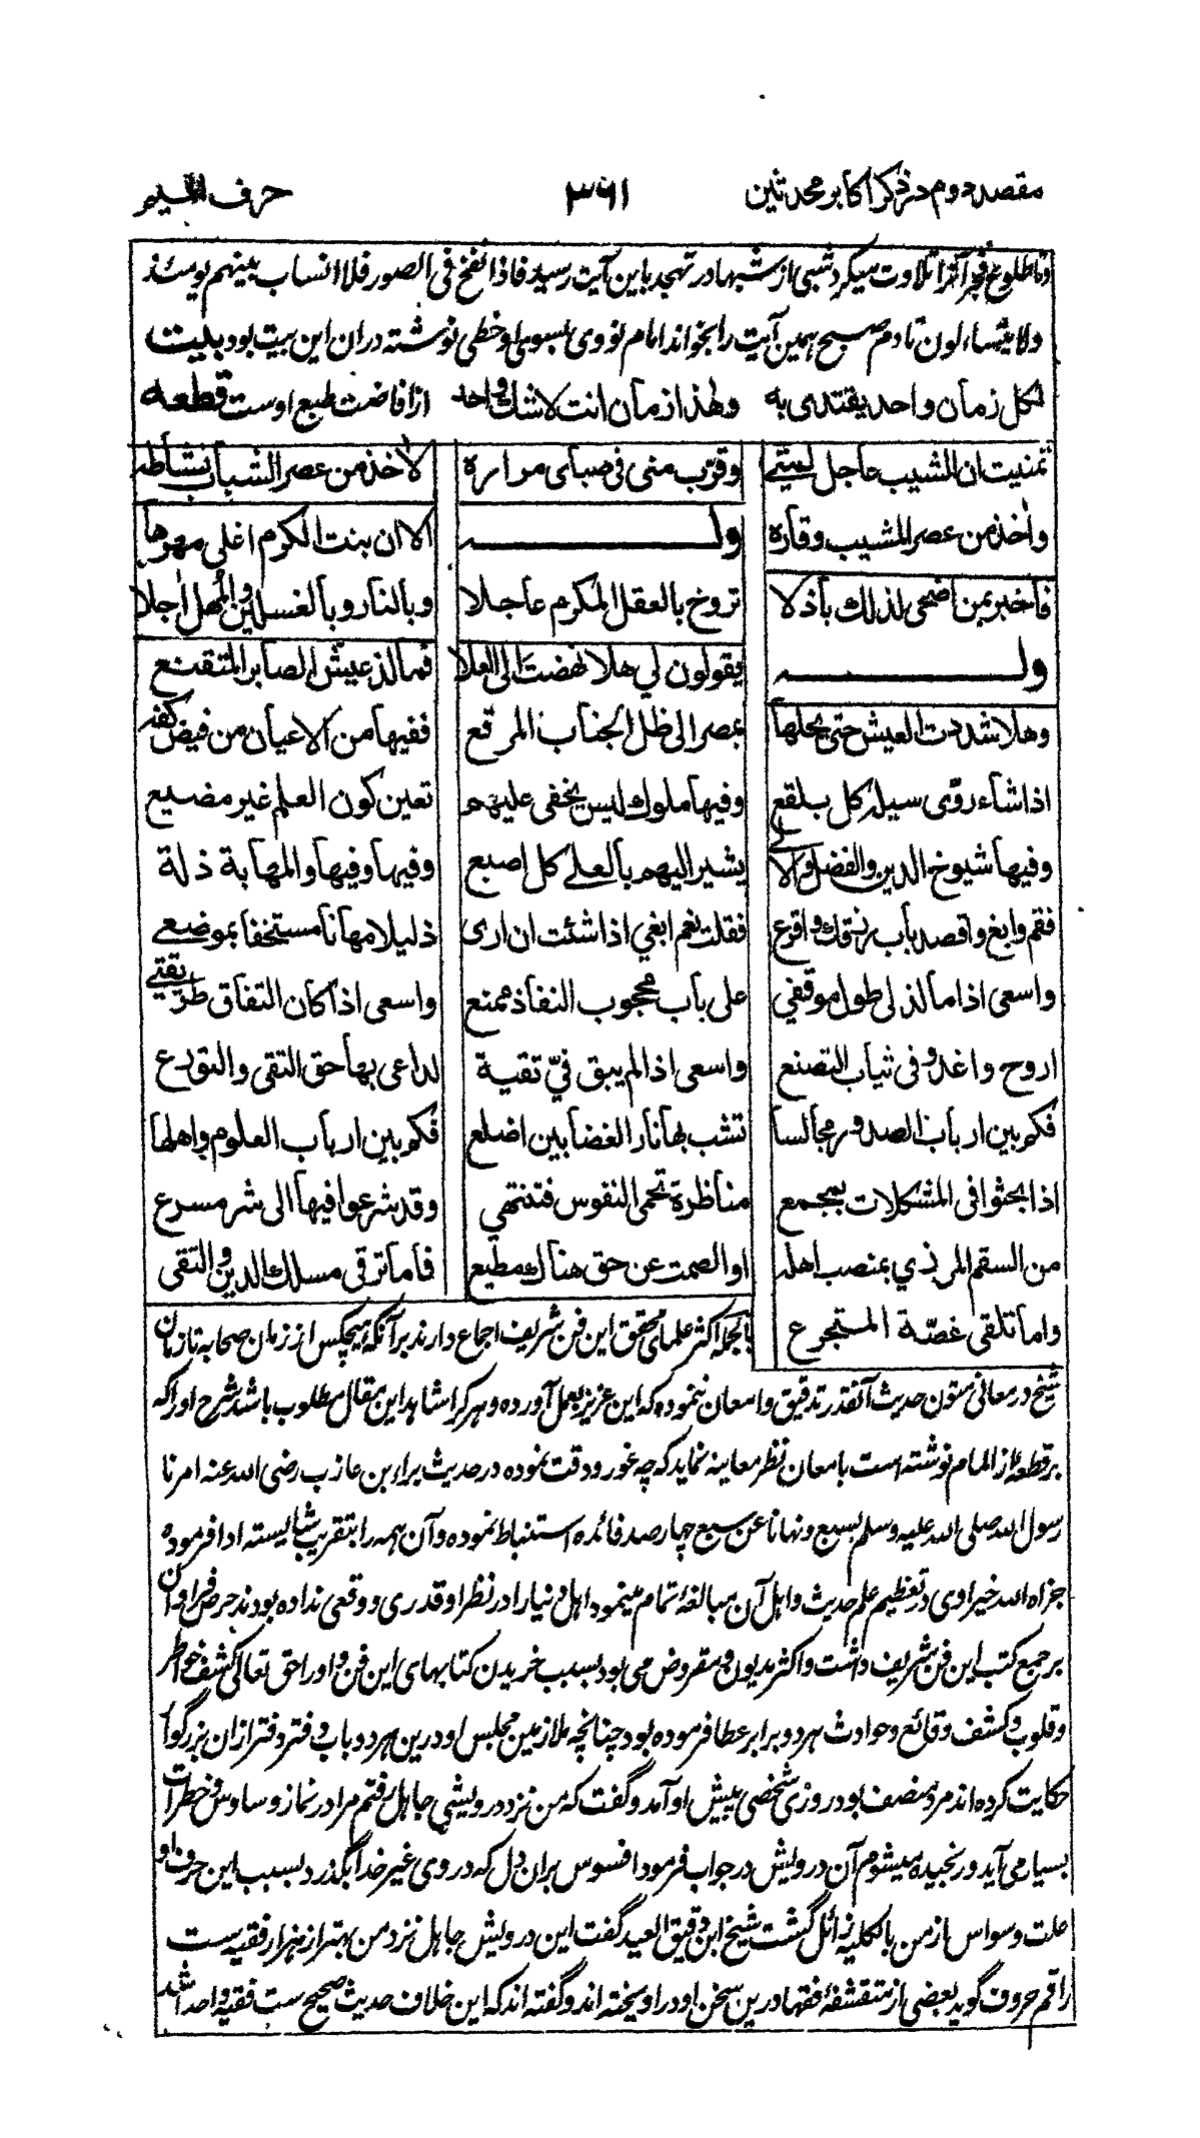 مقصد دوم در ذکر اکابر محدثین ۳۶۱ حرف المیم
وتا طلوع فجر آنرا تلاوت میکرد شبی از شبها در تهجد باین آیت رسید فاذا نفخ فی الصور فلا انساب بینهم یومئذ
ولا یتساءلون تا دم صبح همین آیت را بخواند امام نووی بسوی او خطی نوشته دران این بیت بود بلیت
لکل زمان واحد یقتدی به وهذا زمان انت لاشك واحد از افاضت طبع اوست قطعه
تمنیت ان الشیب عاجل لمتی وقرّب منی فی صبای مزاره لآخذ من عصر الشباب نشاطه
وآخذ من عصر المشیب وقاره وله الا ان بنت الکرم اغلی مهرها
فاخبر بمن اضحی لذلك باذلا تزوّج بالعقل المکرم عاجلا وبالنار وبالغسلین والمهل آجلا
وله یقولون لی هلا نهضت الی العلا فما لذ عیش الصابر المتقنع
وهلا شددت العیش حتی یحلها بمصر الی ظل الجناب المرفع ففیها من الاعیان من فیض کفه
اذا شاء روّی سیله کل بلقع وفیها ملوك لیس یخفی علیهم تعین کون العلم غیر مضیع
وفیها شیوخ الدین والفضل والالی یشیر الیهم بالعلی کل اصبع وفیها وفیها والمهابة ذلة
فقم وابغ واقصد باب رزقك واقرع فقلت نعم ابغی اذا شئت ان اری ذلیلا مهانا مستخفا بموضعی
واسعی اذا ما لذ لی طول موقفی علی باب محجوب النفاذ ممنع واسعی اذا کان النفاق طریقتی
اروح واغدو فی ثیاب التصنع واسعی اذا لم یبق فیّ تقیة لداعی بها حق التقی والتورع
فکم بین ارباب الصدور مجالسا تشب بها نار الغضا بین اضلع فکم بین ارباب العلوم واهلها
اذا بحثوا فی المشکلات بمجمع مناظرة تحمی النفوس فتنتهی وقد شرعوا فیها الی شر مسرع
من السقم المرزی بمنصب اهله او الصمت عن حق هناك مطیع فاما ترقی مسلك الدین والتقی
واما تلقی غصّة المستجرع بالجمله اکثر علمای محقق این فن شریف اجماع دارند بر آنکه هیچکس از زمان صحابه تا زمان
شیخ در معانی متون حدیث آنقدر تدقیق وامعان ننموده که این عزیز بعمل آورده وهر کرا شاهد این مقال مطلوب باشد شرح او را که
بر قطعه از المام نوشته است بامعان نظر معاینه نماید که چه غور ودقت نموده در حدیث براء بن عازب رضی الله عنه امرنا
رسول الله صلی الله علیه وسلم بسبع ونهانا عن سبع چهار صد فائده استنباط نموده وآن همه را بتقریب شایسته ادا فرموده
جزاه الله خیرا وی در تعظیم علم حدیث واهل آن مبالغه اتمام مینمود اهل دنیا را در نظر او قدری ووقعی نداده بودند حرص فراوان
بر جمع کتب این فن شریف داشت واکثر مدیون ومقروض می بود بسبب خریدن کتابهای این فن واو را حق تعالی کشف خواطر
وقلوب وکشف وقائع وحوادث هر دو برابر عطا فرموده بود چنانچه ملازمین مجلس او درین هر دو باب دفتر دفتر ازان بزرگوار
حکایت کرده اند مرد منصف بود روزی شخصی پیش او آمد وگفت که من نزد درویشی جاهل رفتم مرا در نماز وساوس وخطرات
بسیار می آید ورنجیده میشوم آن درویش در جواب فرمود افسوس بران دل که در وی غیر خدا بگذرد بسبب این حرف او
علت وسواس از من بالکلیه زائل گشت شیخ ابن دقیق العید گفت این درویش جاهل نزد من بهتر از هزار فقیه ست
راقم حروف گوید بعضی از متقشفه فقها درین سخن او در آویخته اند وگفته اند که این خلاف حدیث صحیح ست فقیه واحد اشد